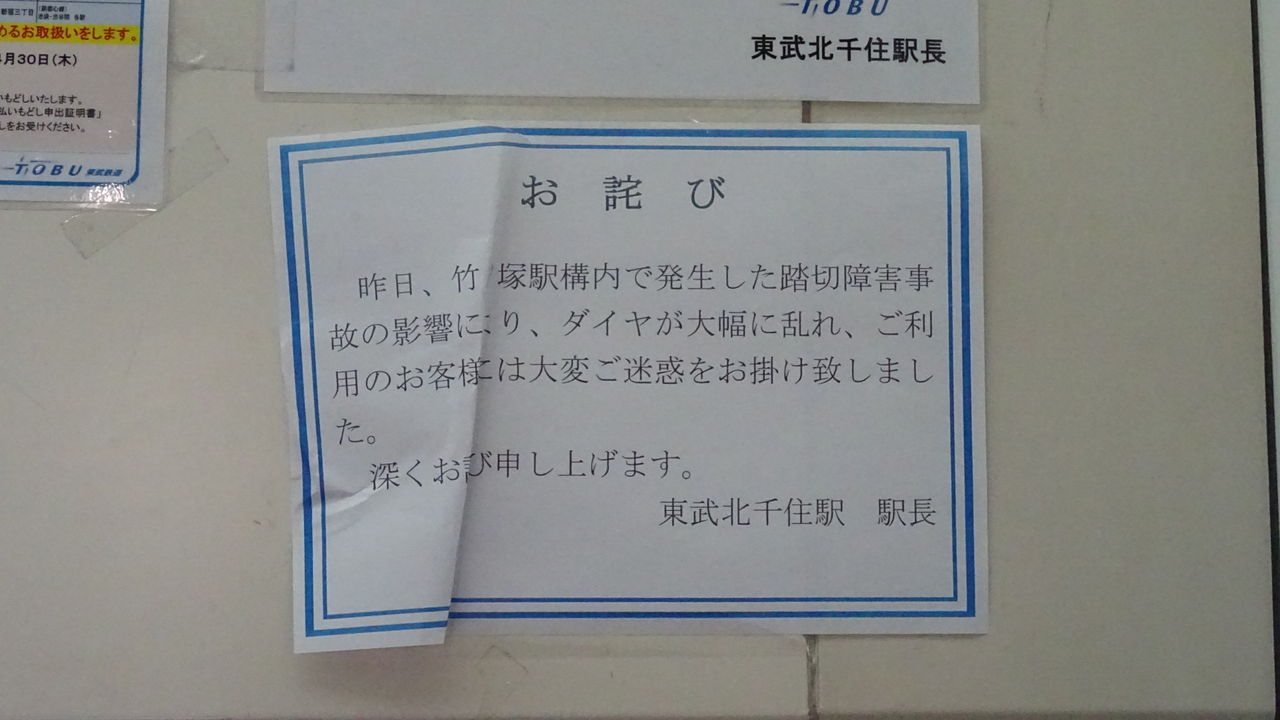 新宿三丁目
池袋・渋谷間 各駅
めるお取扱いをします。
月30日(木)
いもどしいたします。
払いもどし申出証明書」
しをお受けください。
TOBU 東武鉄道
TOBU
東武北千住駅長
お 詫 び
昨日、竹 塚駅構内で発生した踏切障害事
故の影響により、ダイヤが大幅に乱れ、ご利
用のお客様には大変ご迷惑をお掛け致しまし
た。
深くお び申し上げます。
東武北千住駅 駅長